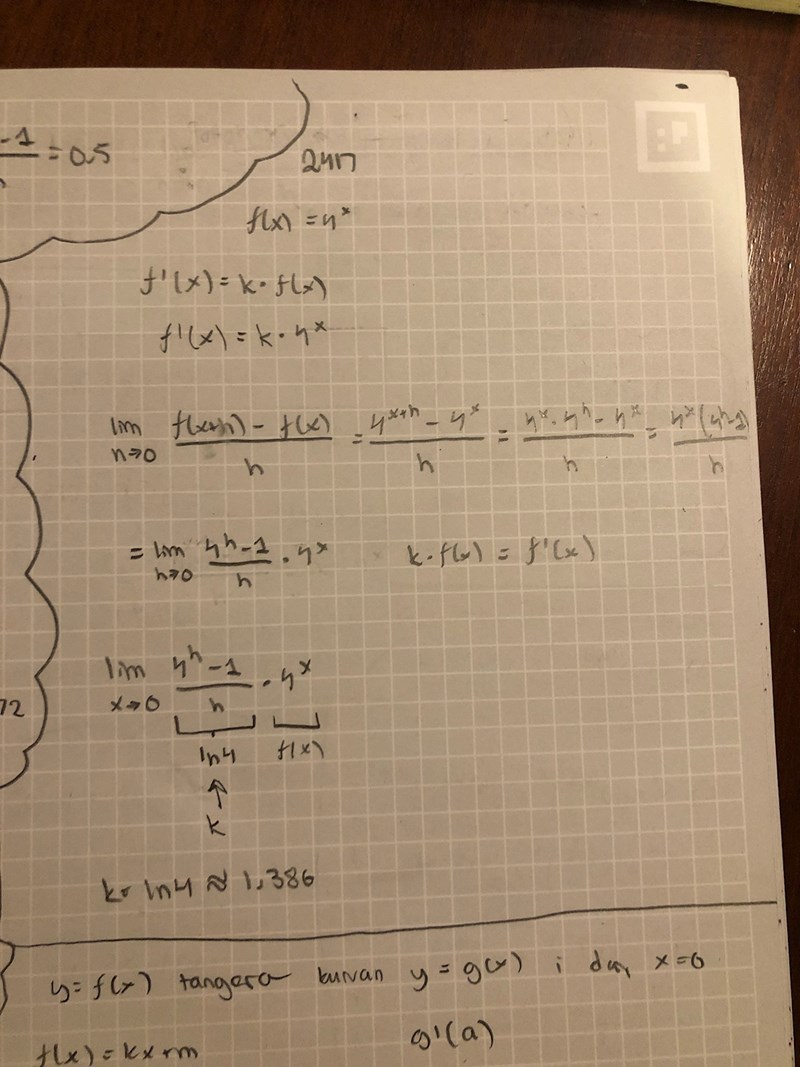 -1/ = 0.5
2417
f(x) = 4^x
f'(x) = k · f(x)
f'(x) = k · 4^x
lim h→0 (f(x+h) - f(x))/h = (4^(x+h) - 4^x)/h = (4^x · 4^h - 4^x)/h = (4^x(4^h-1))/h
= lim h→0 (4^h-1)/h · 4^x k·f(x) = f'(x)
lim x→0 (4^h-1)/h · 4^x
ln4 f(x)
↑
72
k
k= ln4 ≈ 1,386
y = f(x) tangerar kurvan y = g(x) i där x=0
f(x) = kx+m g'(a)